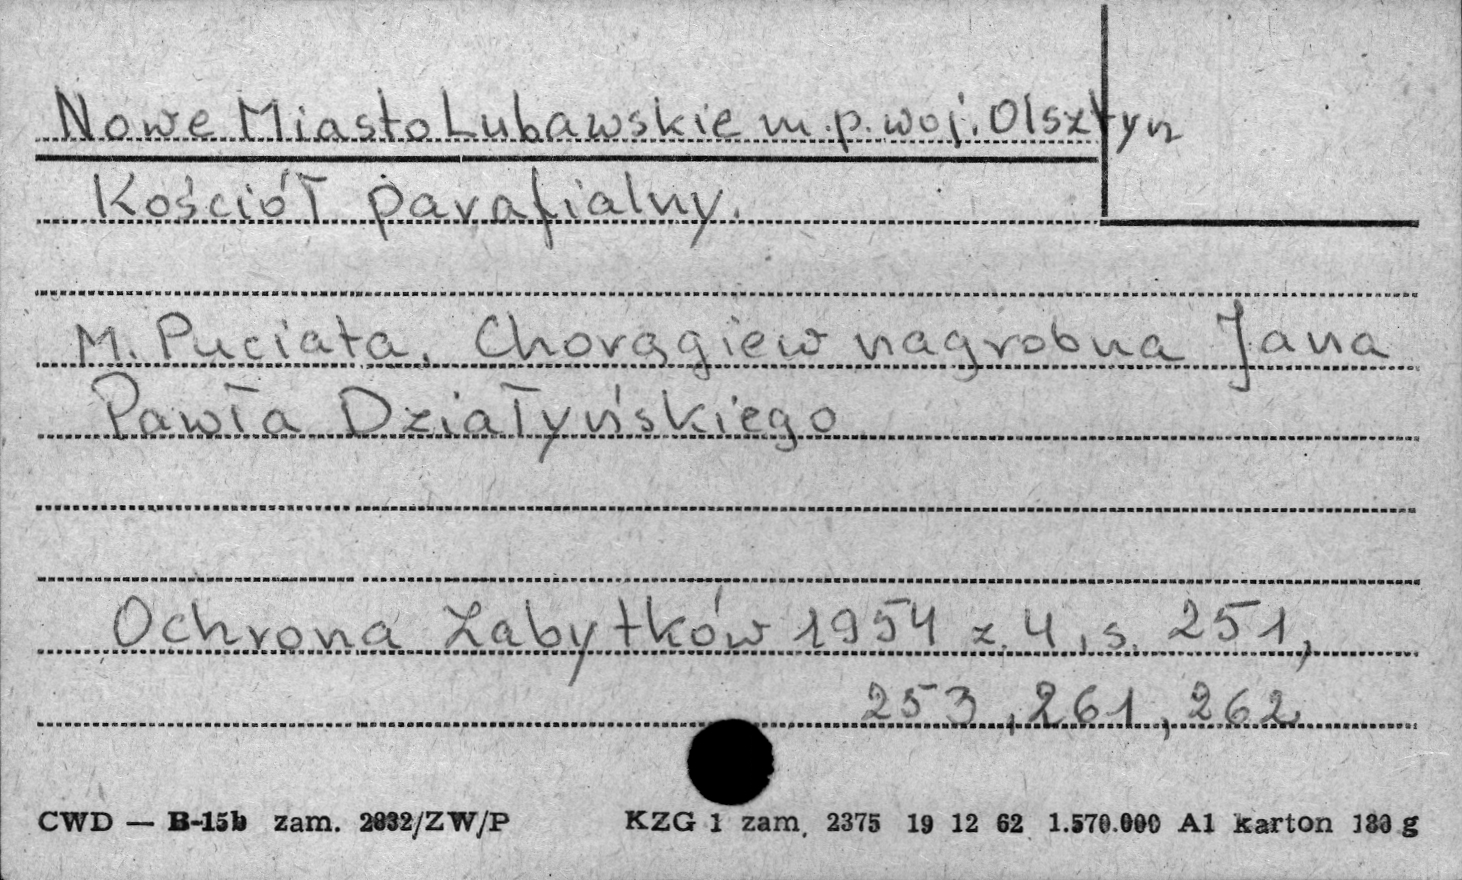 Nowe Miasto Lubawskie m.p. woj. Olsztyn
Kościół parafialny.
M. Puciata. Chorągiew nagrobna Jana
Pawła Działyńskiego
Ochrona Zabytków 1954 z. 4, s. 251,
253, 261, 262
CWD — B-15b zam. 2832/ZW/P KZG 1 zam. 2375 19 12 62 1.570.000 A1 karton 180 g